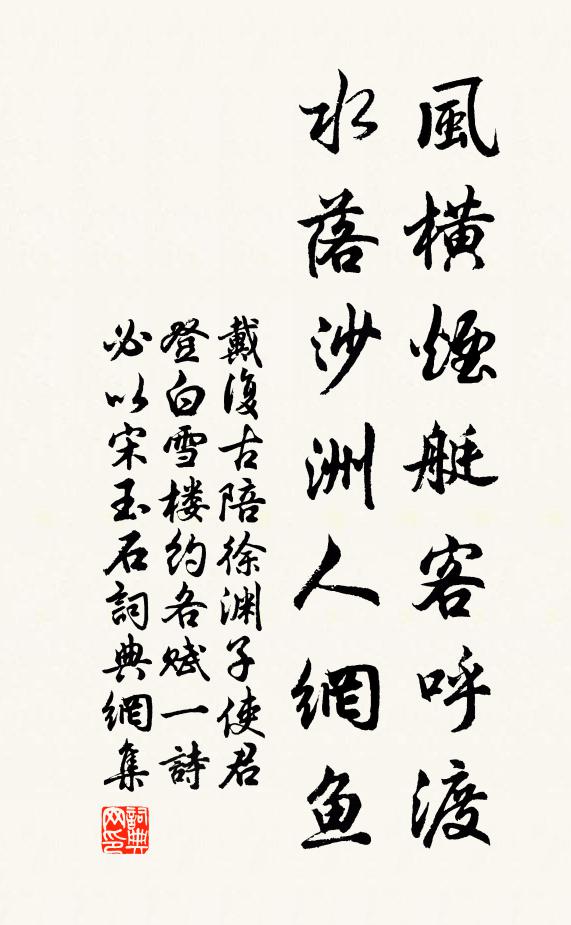 風橫煙艇客呼渡
水落沙洲人網魚
戴復古陪徐淵子使君
登白雪楼約各賦一詩
必以宋玉石詞典網集
詞典网印